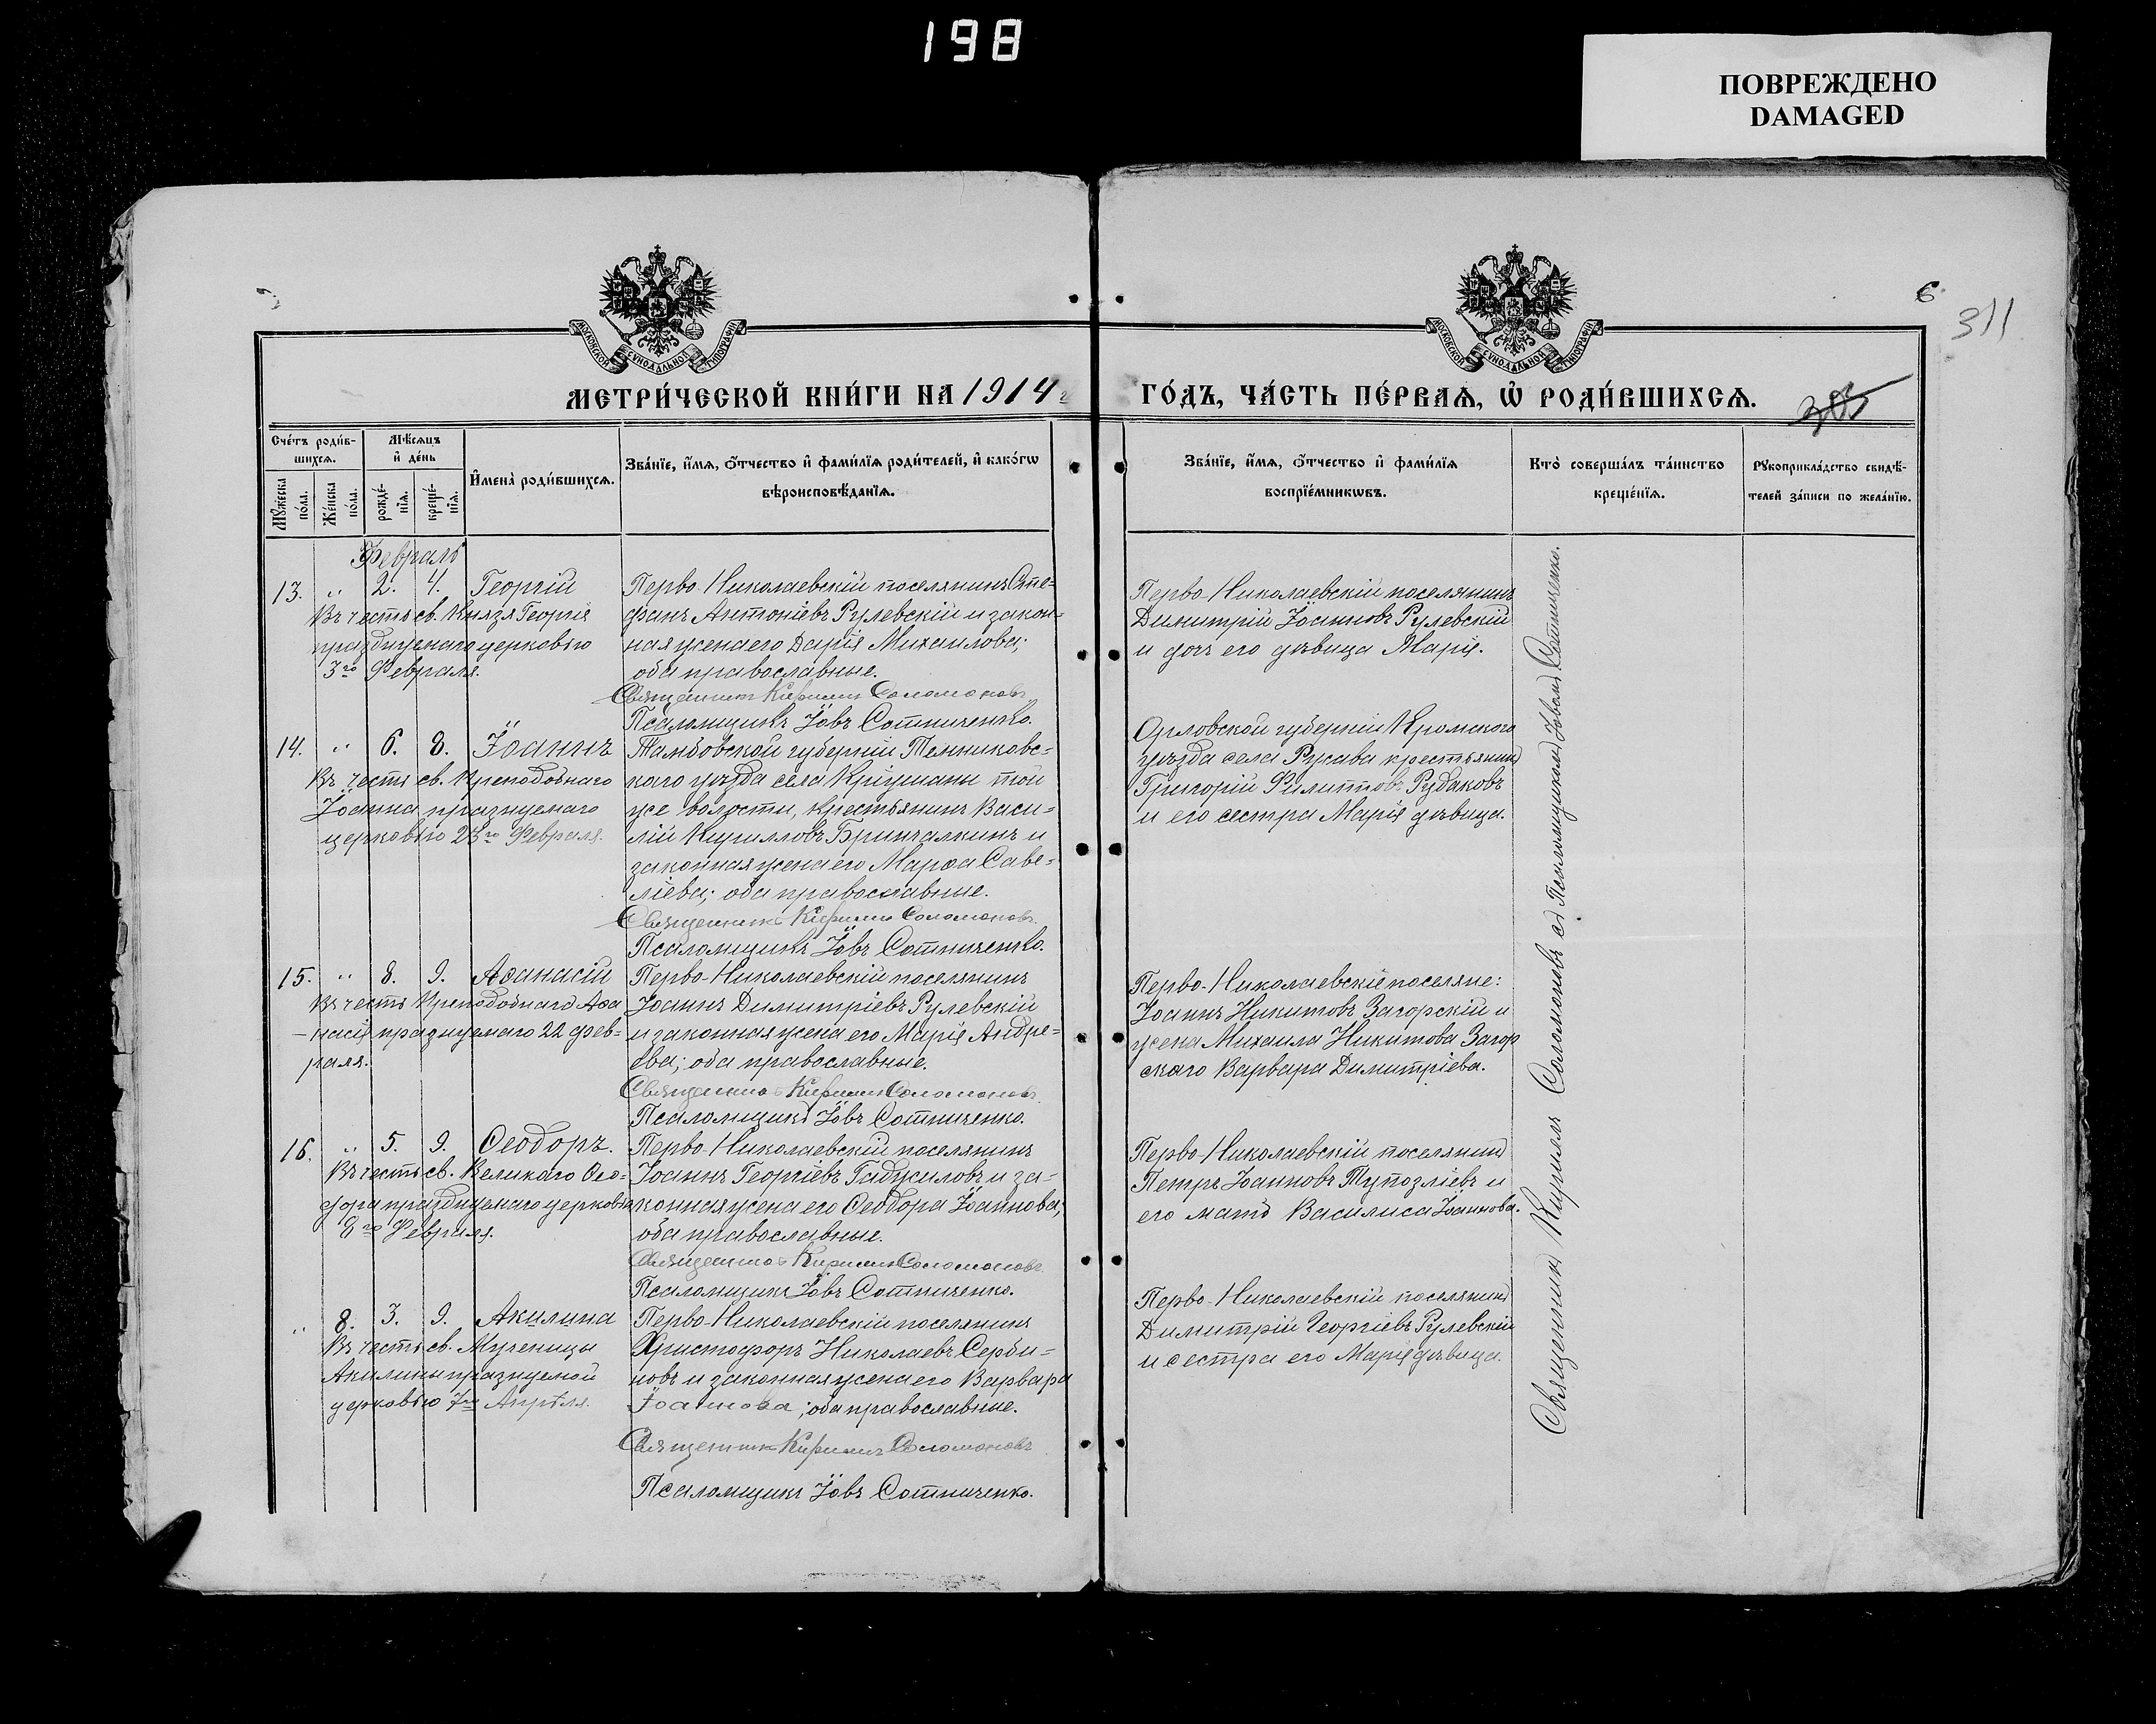 198
ПОВРЕЖДЕНО
DAMAGED
МОСКОВСКОЙ СѴНОДАЛЬНОЙ ТИПОГРАФІИ
МОСКОВСКОЙ СѴНОДАЛЬНОЙ ТИПОГРАФІИ
6
311
МЕТРИ́ЧЕСКОЙ КНИ́ГИ НА 1914 г
ГО́ДЪ, ЧА́СТЬ ПЕ́РВАѦ, Ѡ҆ РОДИ́ВШИХСѦ.
Сче́тъ роди́в-
шихсѧ.
Мѣ́сѧцъ
и҆ де́нь
Мꙋ́жеска
по́ла.
Же́нска
по́ла.
рожде́-
нїѧ.
креще́-
нїѧ.
И҆мена̀ роди́вшихсѧ.
Зва́нїе, и҆́мѧ, ѻ҆́тчество и҆ фами́лїѧ роди́телей, и҆ како́гѡ
вѣроисповѣ́данїѧ.
Зва́нїе, и҆́мѧ, ѻ҆́тчество и҆ фами́лїѧ
воспрїе́мникѡвъ.
Кто̀ соверша́лъ та́инство
креще́нїѧ.
Рꙋкоприкла́дство свидѣ́-
телей за́писи по жела́нїю.
Февраль
13. " 2. 4. Георгій
Въ честь св. Князя Георгія
празднуемаго церковью
3го Февраля.
Перво-Николаевскій поселянинъ Сте-
фанъ Антоніевъ Рулевскій и закон-
ная жена его Дарія Михаилова;
оба православные.
Священникъ Кириллъ Соломоновъ
Псаломщикъ Іовъ Сотниченко.
Перво-Николаевскій поселянинъ
Димитрій Іоанновъ Рулевскій
и дочь его дѣвица Марія.
14. " 6. 8. Іоаннъ
Въ честь св. Преподобнаго
Іоанна празнуемаго
церковью 23го Февраля.
Тамбовской губерніи Темниковс-
каго уѣзда села Кріушаны той
же волости, крестьянинъ Васи-
лій Кирилловъ Бринчалкинъ и
законная жена его Марѳа Саве-
ліева; оба православные.
Священникъ Кириллъ Соломоновъ
Псаломщикъ Іовъ Сотниченко.
Орловской губерніи Кромскаго
уѣзда села Ржава крестьянинъ
Григорій Филипповъ Рудаковъ
и его сестра Марія дѣвица.
15. " 8. 9. Аѳанасій
Въ честь Преподобнаго Аѳа
-насія празнуемаго 22 фев-
раля.
Перво-Николаевскій поселянинъ
Іоаннъ Димитріевъ Рулевскій
и законная жена его Марія Андре-
ева; оба православные.
Священникъ Кириллъ Соломоновъ
Псаломщикъ Іовъ Сотниченко.
Перво-Николаевскіе поселяне:
Іоаннъ Никитовъ Загорскій и
жена Михаила Никитова Загор
скаго Варвара Димитріева.
16. " 5. 9. Ѳеодоръ.
Въ честь св. Великаго Ѳео-
дора празднуемаго церковью
8го Февраля.
Перво-Николаевскій поселянинъ
Іоаннъ Георгіевъ Гаджиловъ и за-
конная жена его Ѳеодора Іоаннова;
оба православные.
Священникъ Кириллъ Соломоновъ
Псаломщикъ Іовъ Сотниченко.
Перво-Николаевскій поселянинъ
Петръ Іоанновъ Тупозліевъ и
его мать Василиса Іоаннова.
" 8. 3. 9. Акилина
Въ честь св. Мученицы
Акилины празнуемой
церковью 7го Апрѣля.
Перво-Николаевскій поселянинъ
Христофоръ Николаевъ Серби-
новъ и законная жена его Варвара
Іоаннова; оба православные.
Священникъ Кириллъ Соломоновъ
Псаломщикъ Іовъ Сотниченко.
Перво-Николаевскій поселянинъ
Димитрій Георгіевъ Рулевскій
и сестра его Марія дѣвица.
Священникъ Кириллъ Соломоновъ съ Псаломщикомъ Іовомъ Сотниченко.